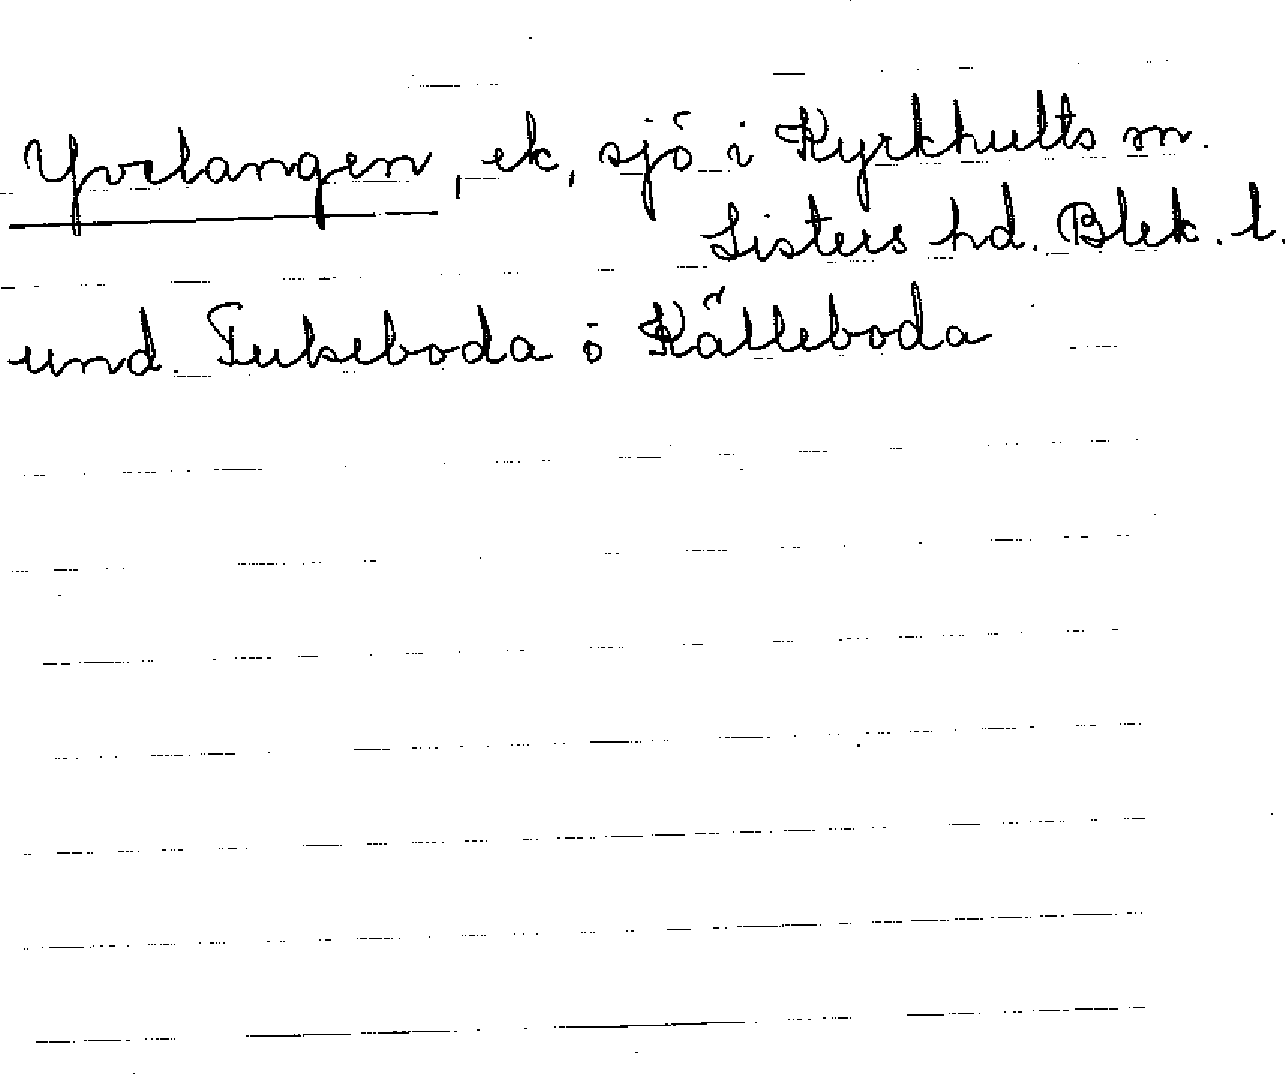 Yvelangen, ek, sjö i Kyrkhults sn.
Listers hd. Blek. l.
und. Fukeboda o Källeboda